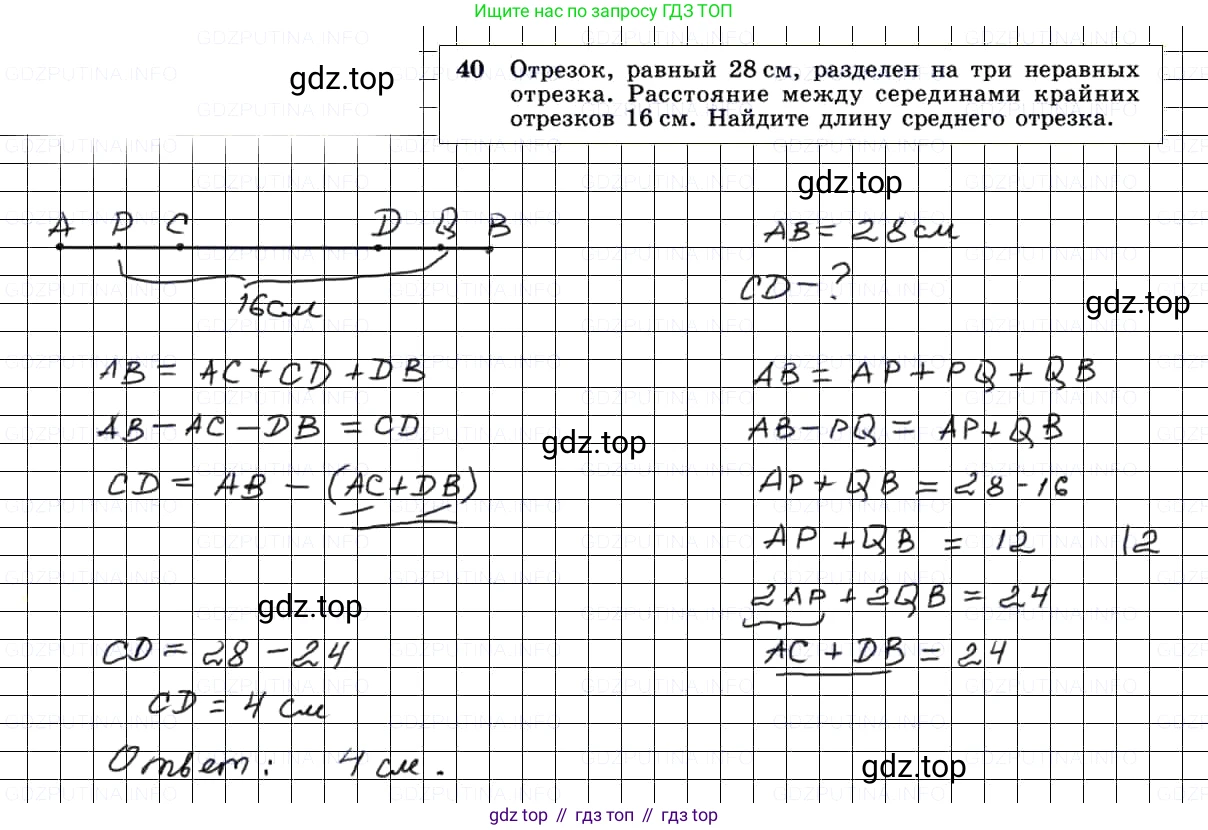 Ищите нас по запросу ГДЗ ТОП
40 Отрезок, равный 28 см, разделен на три неравных
отрезка. Расстояние между серединами крайних
отрезков 16 см. Найдите длину среднего отрезка.
gdz.top
gdz.top
A P C D Q B
AB = 28 см
16 см
CD - ?
gdz.top
AB = AC + CD + DB
AB = AP + PQ + QB
AB - AC - DB = CD
AB - PQ = AP + QB
gdz.top
CD = AB - (AC + DB)
AP + QB = 28 - 16
AP + QB = 12 |2
gdz.top
2AP + 2QB = 24
CD = 28 - 24
AC + DB = 24
CD = 4 см
Ответ: 4 см.
gdz.top
gdz top // гдз топ // gdz top
GDZPUTINA.INFO